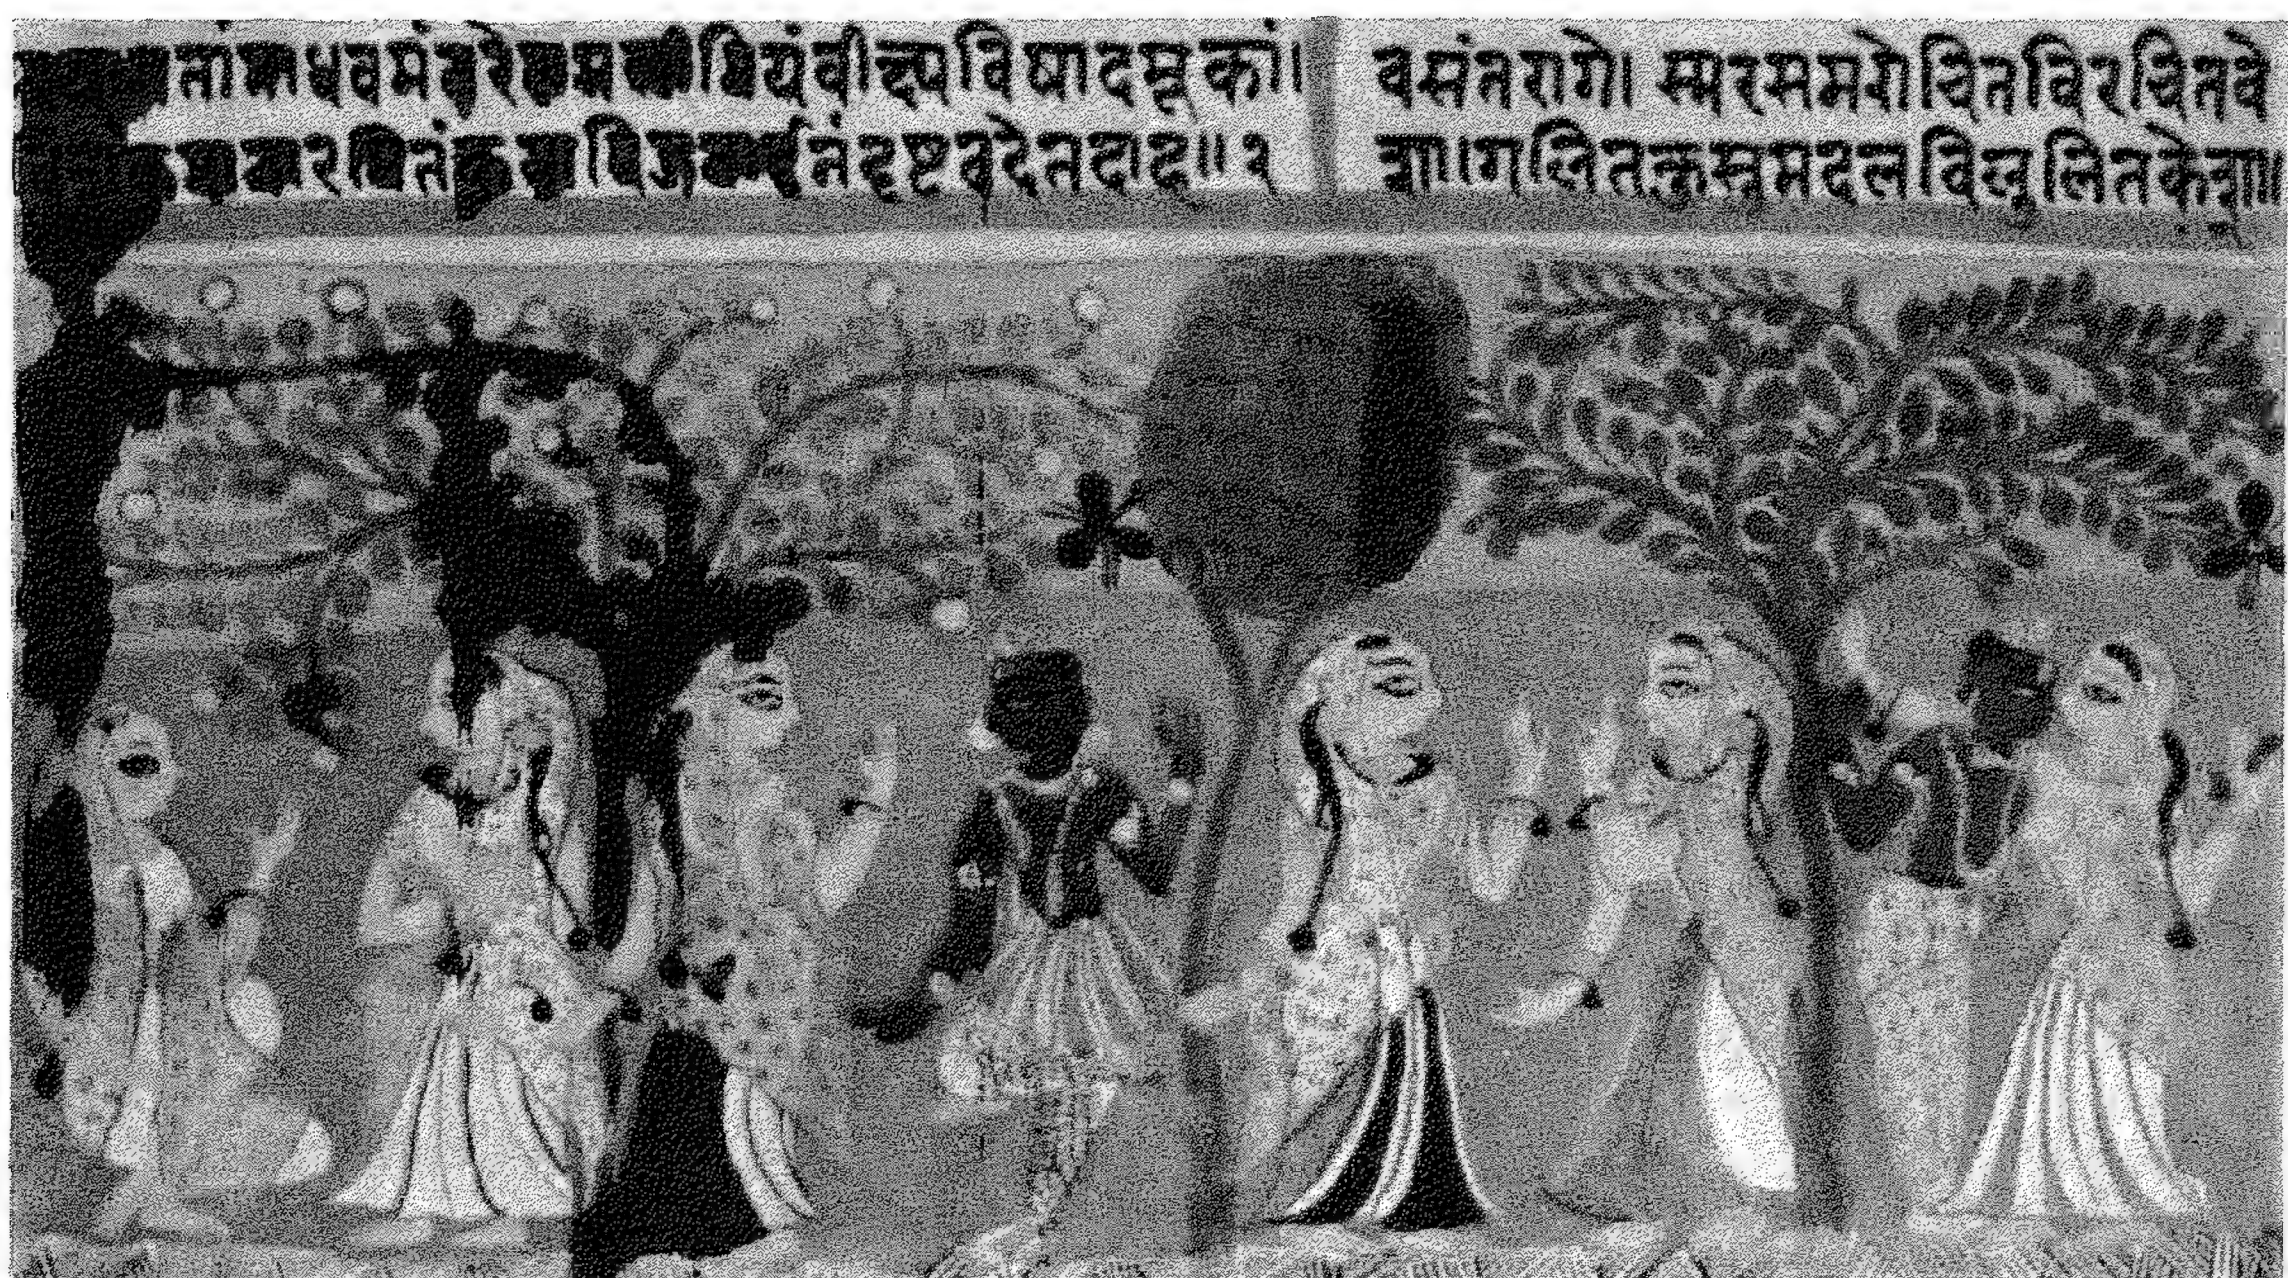 तां माधवमंतरेण सखीमियं वीक्ष्य विषादमूकां।
माना रमितं कयापि जनार्दनं दृष्टवदेतदाह॥१
वसंतरागे। स्मरसमरोचितविरचितवे
शा।गलितकुसुमदलविलुलितकेशा॥